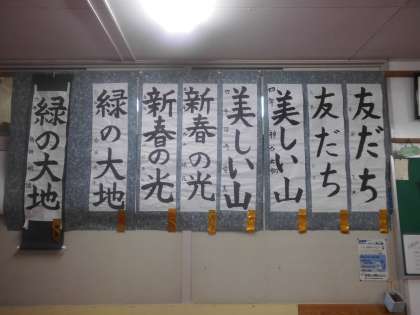 友だち
友だち
美しい山
美しい山
新春の光
新春の光
緑の大地
緑の大地